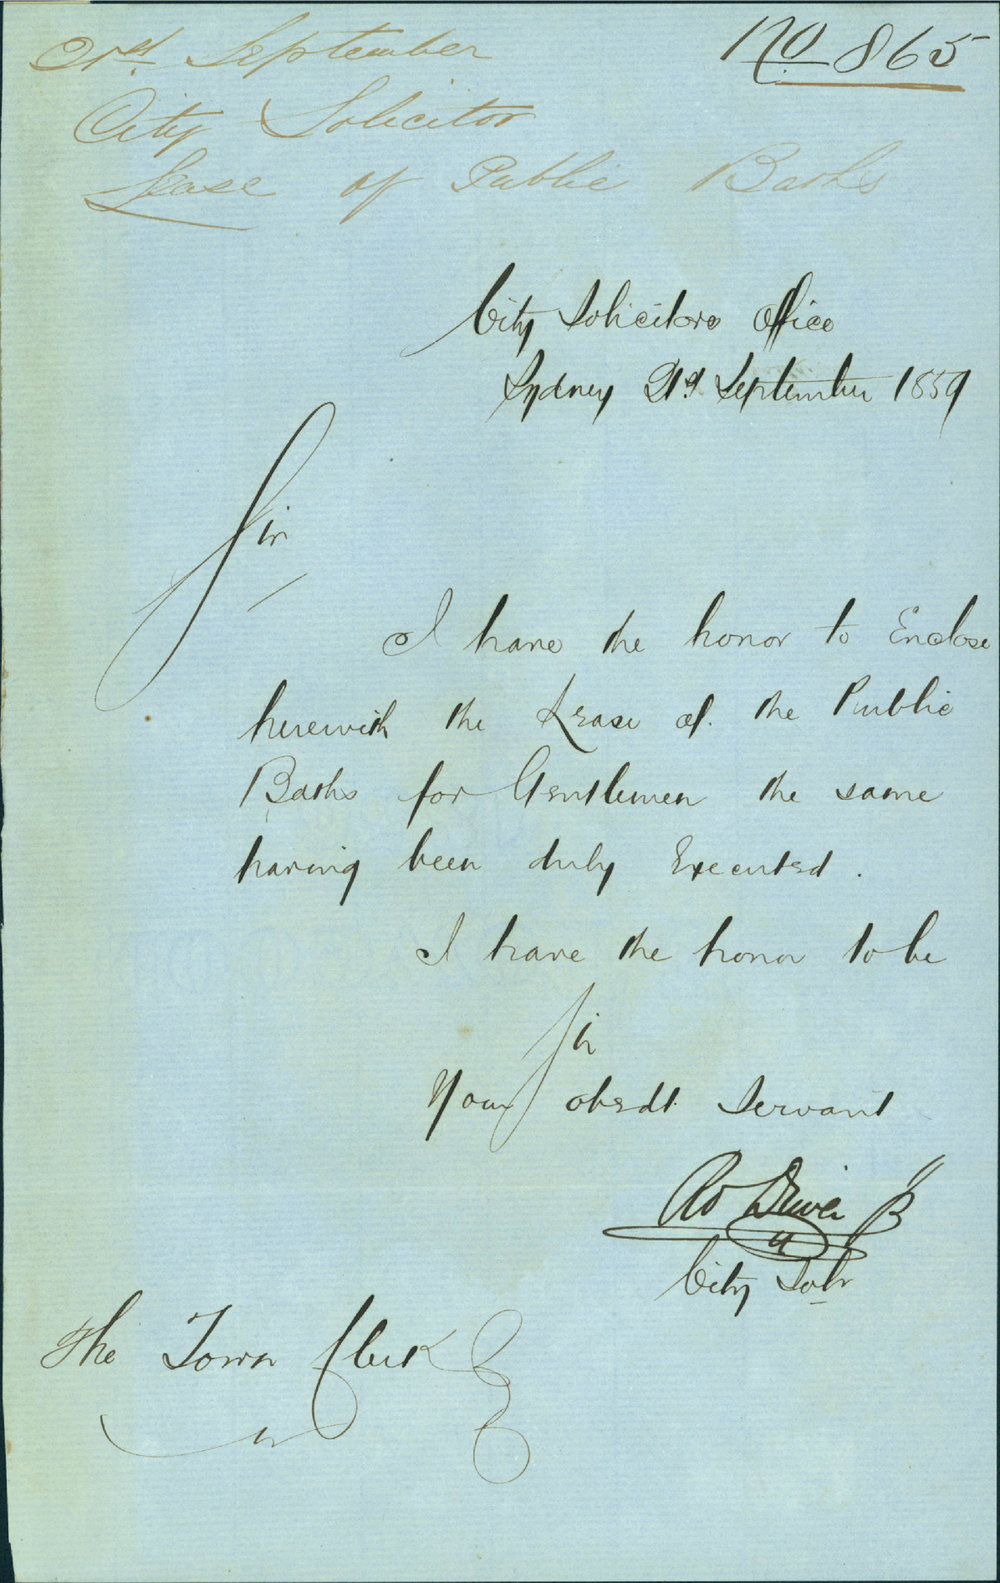 No 865
21st September
City Solicitor
Lease of Public Baths
City Solicitors Office
Sydney 21st September 1859
Sir
I have the honor to Enclose
herewith the Lease of the Public
Baths for Gentlemen the same
having been duly Executed.
I have the honor to be
Sir
Your obedt Servant
Rd Driver Jr
City Solr
The Town Clerk